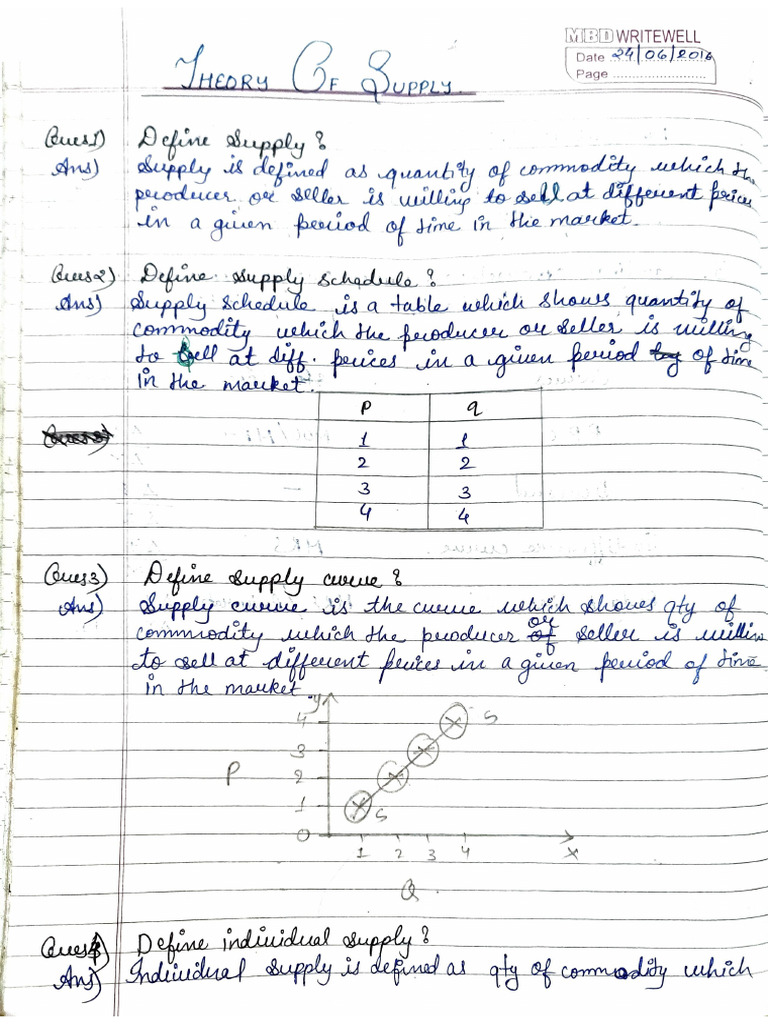 MBD WRITEWELL
Date 24/06/2016
Page
THEORY OF SUPPLY.
Ques1) Define Supply?
Ans) Supply is defined as quantity of commodity which the
producer or seller is willing to sell at different prices
in a given period of time in the market.
Ques2) Define supply schedule?
Ans) Supply schedule is a table which shows quantity of
commodity which the producer or seller is willing
to sell at diff. prices in a given period of time
in the market.
P q
1 1
2 2
3 3
4 4
Ques3) Define supply curve?
Ans) Supply curve is the curve which shows qty of
commodity which the producer or seller is willin
to sell at different prices in a given period of time
in the market.
y
4 S
3
P 2
1 S
0
1 2 3 4 x
Q
Ques4) Define individual supply?
Ans) Individual supply is defined as qty of commodity which